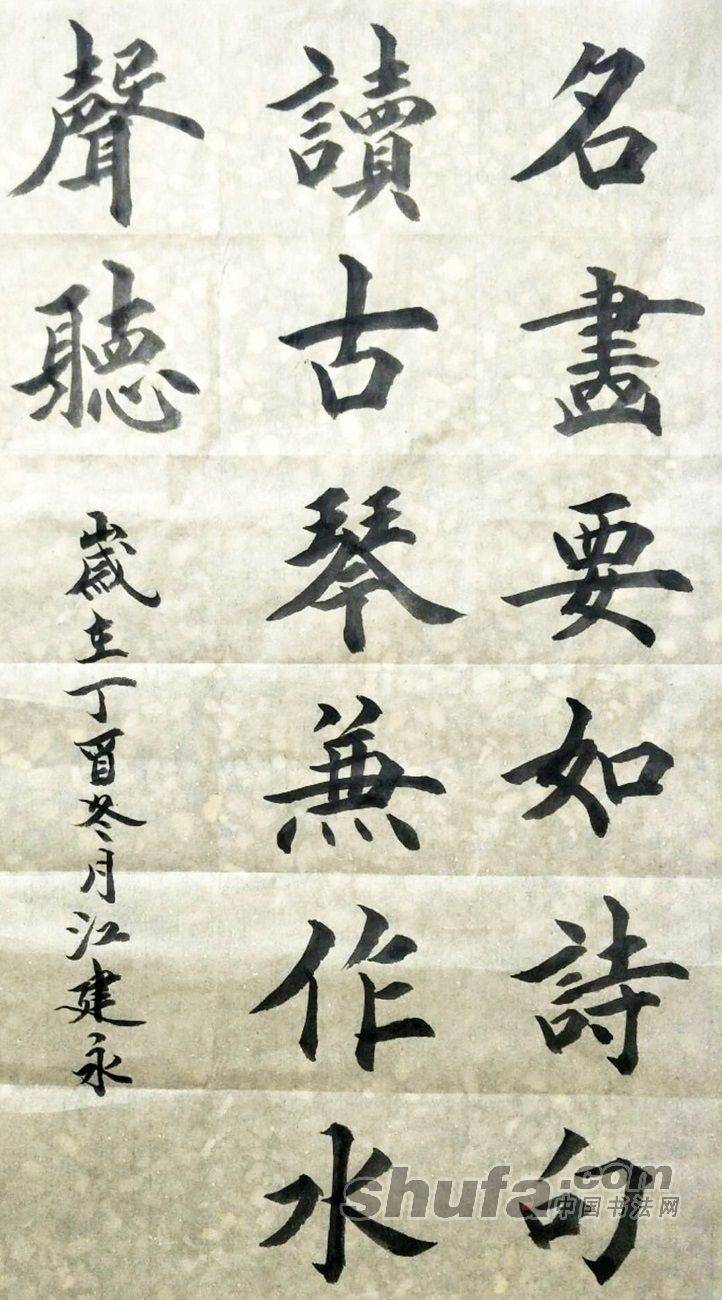 名畫要如詩句
讀古琴兼作水
聲聽
歲在丁酉冬月江建永
shufa.com
中国书法网